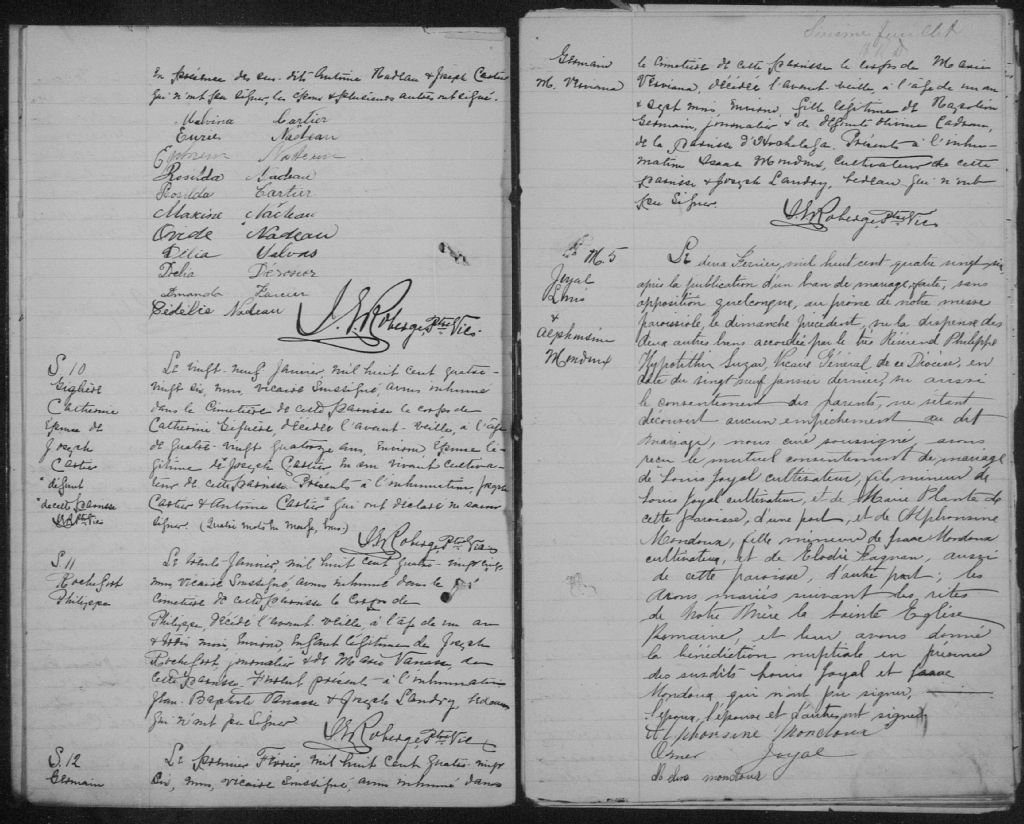 en présence des sus-dits Antoine Nadeau & Joseph Cartier
qui n'ont pu signer, les époux & plusieurs autres ont signé.
Malvina Cartier
Nadeau
Rosilda Nadeau
Rosilda Cartier
Maxime Nadeau
Ovide Nadeau
Délia
Délia
Amanda
Nadeau
J. E. Roberge, Ptre Vic.
S. 10
Giguère
Catherine
Épouse de
Joseph
Cartier
défunt
de cette paroisse
Le vingt-neuf Janvier, mil huit cent quatre-
vingt six, nous, vicaire soussigné, avons inhumé
dans le Cimetière de cette paroisse le corps de
Catherine Giguère, décédée l'avant-veille, à l'âge
de quatre-vingt quatorze ans, environ, Épouse lé-
gitime de Joseph Cartier, en son vivant cultiva-
teur de cette paroisse. Présents à l'inhumation, Joseph
Cartier & Antoine Cartier qui ont déclaré ne savoir
signer. (Quatre mots en marge, bons.)
J. E. Roberge, Ptre Vic.
S. 11
Rochefort
Philippe
Le trente Janvier, mil huit cent quatre-vingt six,
nous, vicaire soussigné, avons inhumé dans le
Cimetière de cette paroisse le Corps de
Philippe, décédé l'avant veille, à l'âge de un an
& trois mois, environ, Enfant légitime de Joseph
Rochefort, journalier & de Marie Vanasse, de
cette paroisse. Furent présents à l'inhumation
Jean-Baptiste Vanasse & Joseph Landry, bedeau
qui n'ont pu signer
J. E. Roberge, Ptre Vic.
S. 12
Germain
Le premier Février, mil huit cent quatre-vingt
six, nous, vicaire soussigné, avons inhumé dans
feuillet
Germain
M. Viviana
le cimetière de cette paroisse le corps de Marie
Viviana, décédée l'avant-veille, à l'âge de un an
& sept mois, environ, fille légitime de Napoléon
Germain, journalier & de défunte Olivine Cadreau,
de la paroisse d'Hochelaga. Présents à l'inhu-
mation Isaac Mondoux, Cultivateur de cette
paroisse & Joseph Landry, bedeau qui n'ont
pu signer.
J. E. Roberge, Ptre Vic.
M. 5
Joyal
Louis
&
Alphonsine
Mondoux
Le deux Février, mil huit cent quatre vingt six
après la publication d'un ban de mariage faite, sans
opposition quelconque, au prône de notre messe
paroissiale, le dimanche précédent, vu la dispense des
deux autres bans accordée par le très Révérend Philippe
Hypolithe Suzor, Vicaire Général de ce Diocèse, en
date du vingt neuf janvier dernier, vu aussi
le consentement des parents, ne s'étant
découvert aucun empêchement au dit
mariage, nous curé soussigné, avons
reçu le mutuel consentement de mariage
de Louis Joyal cultivateur, fils mineur de
Louis Joyal cultivateur, et de Marie Plante de
cette paroisse, d'une part, et de Alphonsine
Mondoux, fille mineure de Isaac Mondoux
cultivateur, et de Elodie Gagnon, aussi
de cette paroisse, d'autre part; les
avons mariés suivant des rites
de Notre Mère la Sainte Eglise
Romaine, et leur avons donné
la bénédiction nuptiale en présence
des susdits Louis Joyal et Isaac
Mondoux qui n'ont pu signer,
l'époux, l'épouse et d'autres ont signé
Alphonsine Mondoux
Omer Joyal
mondoux